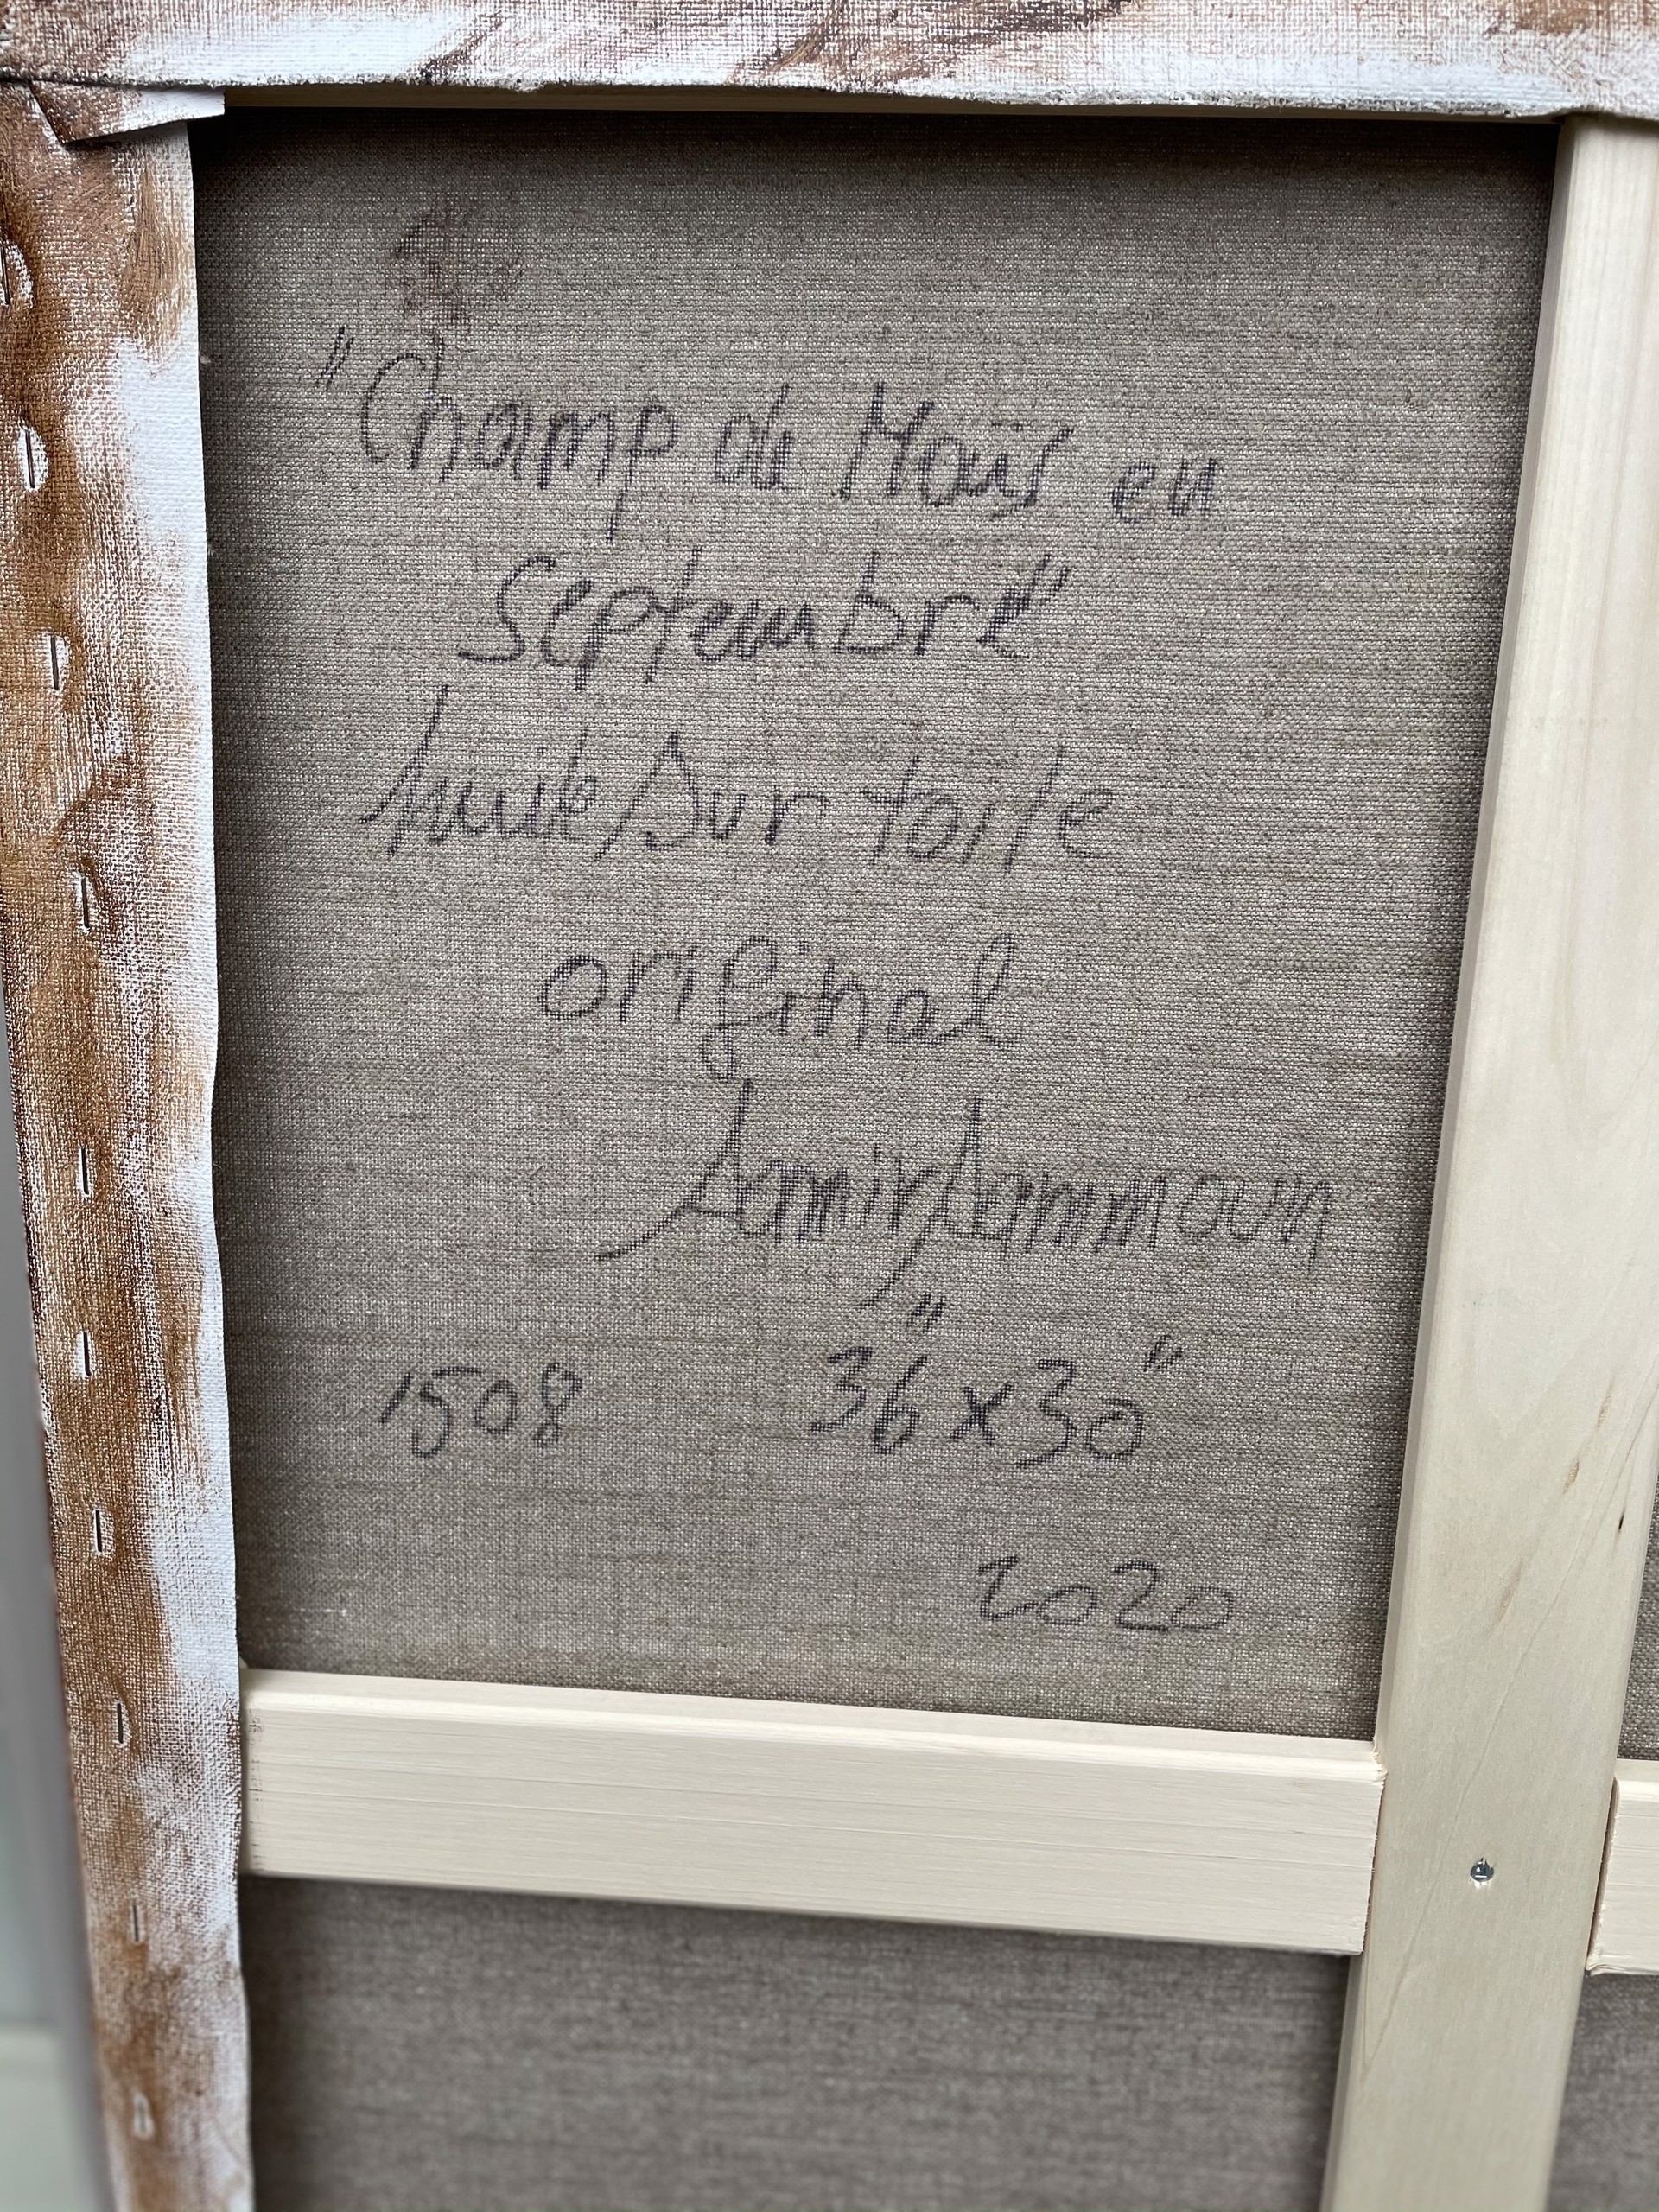 "Champ de Maïs en
Septembre"
huile sur toile
original
Samir Sammoun
1508 36" x 30"
2020